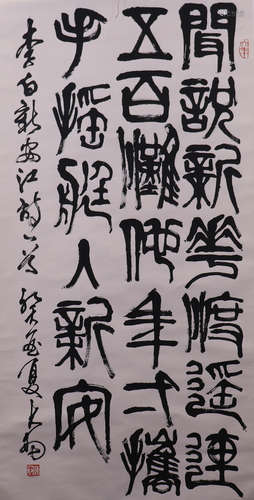 聞說新華溪遙連
五百灘他年一攜
手搖艇入新安
李白新安江詩一首 癸未夏大